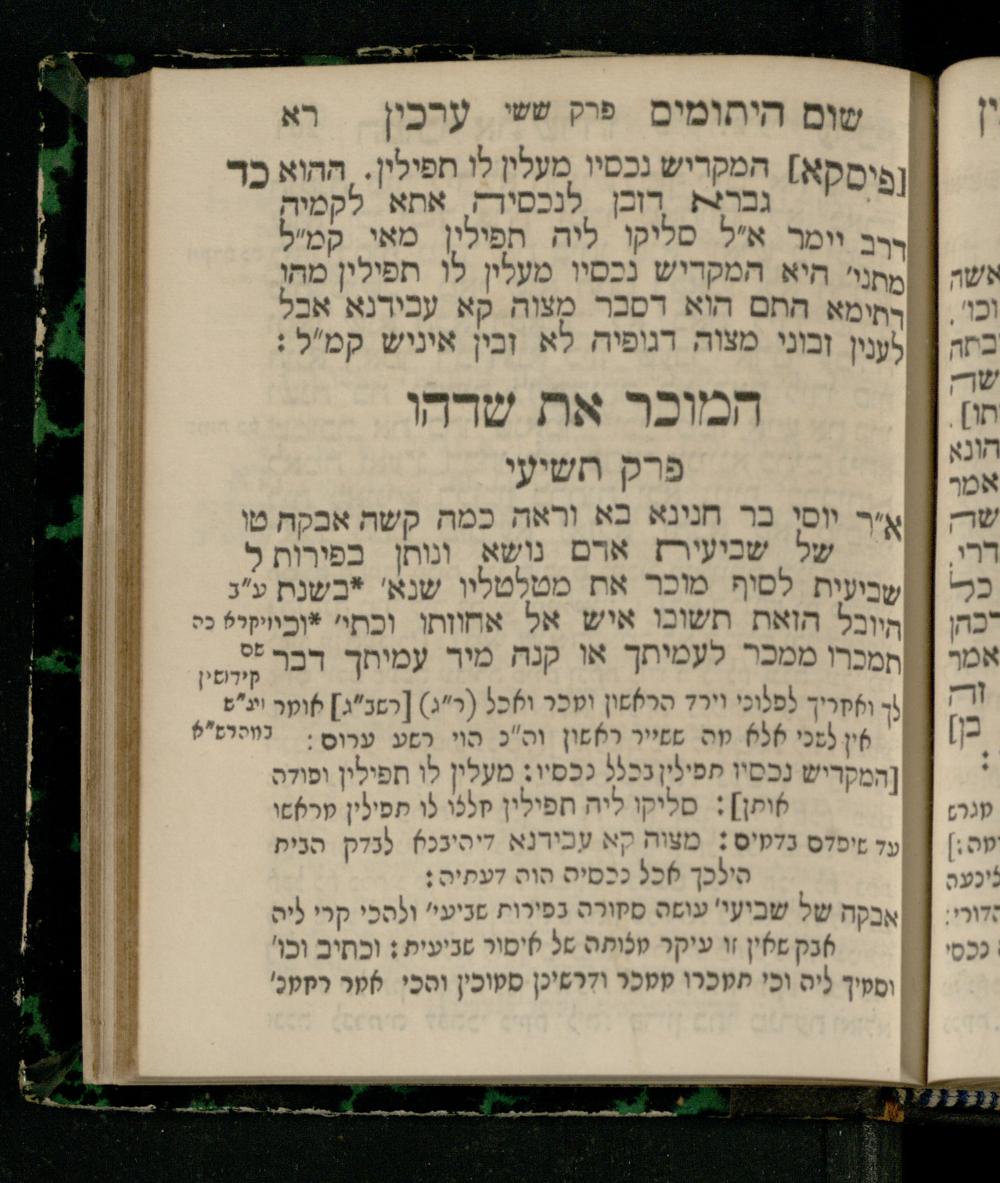 שום היתומים פרק ששי ערכין רא
[פיסקא] המקדיש נכסיו מעלין לו תפילין. ההוא כד
גברא דזבן לנכסיה אתא לקמיה
דרב יימר א״ל סליקו ליה תפילין מאי קמ״ל
מתני׳ היא המקדיש נכסיו מעלין לו תפילין מהו
דתימא התם הוא דסבר מצוה קא עבידנא אבל
לענין זבוני מצוה דגופיה לא זבין איניש קמ״ל :
המוכר את שדהו
פרק תשיעי
א״ר יוסי בר חנינא בא וראה כמה קשה אבקה טו
של שביעית אדם נושא ונותן בפירות ל
שביעית לסוף מוכר את מטלטליו שנא׳ *בשנת ע״ב
היובל הזאת תשובו איש אל אחוזתו וכתי׳ *וכי ויקרא כה
תמכרו ממכר לעמיתך או קנה מיד עמיתך דבר שם
קידושין
לך ואחריך לפלוני וירד הראשון ומכר ואכל (ר״ג) [רשב״ג] אומר
אין לשני אלא מה ששייר ראשון וה״נ הוי רשע ערום :
במהרש״א
[המקדיש נכסיו תפילין בכלל נכסיו : מעלין לו תפילין ופודה
אותן] : סליקו ליה תפילין חלצו לו תפילין מראשו
עד שיפדם בדמים : מצוה קא עבידנא דיהיבנא לבדק הבית
הילכך אכל נכסיה הוה דעתיה :
אבקה של שביעי׳ עושה סחורה בפירות שביעי׳ ולהכי קרי ליה
אבק שאין זו עיקר מצותה של איסור שביעית : וכתיב וכו׳
וסמיך ליה וכי תמכרו ממכר ודרשינן סמוכין והכי אמר רחמנ׳
אשה
וכו׳.
שדה
תו].
הונא
אמר
שדה
דרי.
כל
אמר
זה
בן]
:
מגרש
נכסי